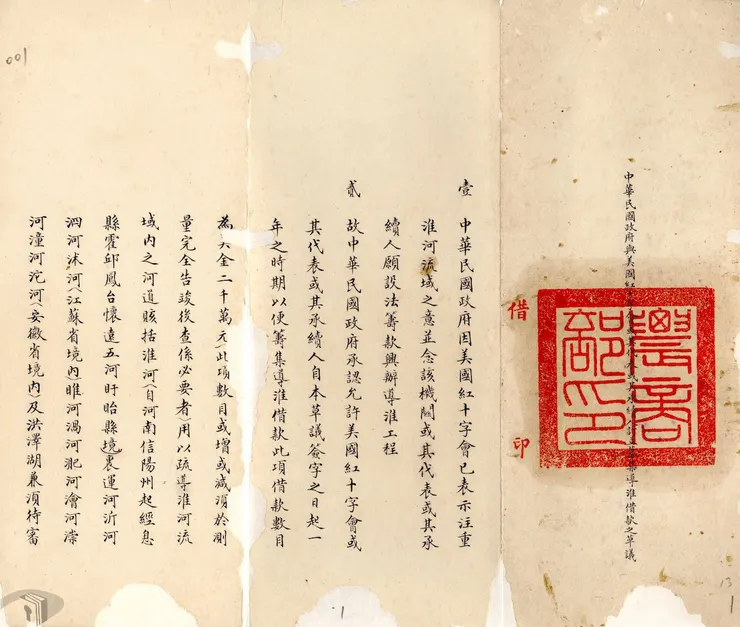 中華民國政府與美國紅十字會或其代表或其承續人籌集導淮借款之草議
借印
農商部印
壹 中華民國政府因美國紅十字會已表示注重
淮河流域之意並念該機關或其代表或其承
續人願設法籌款興辦導淮工程
貳 故中華民國政府承認允許美國紅十字會或
其代表或其承續人自本草議簽字之日起一
年之時期以便籌集導淮借款此項借款數目
為美金二千萬元(此項數目或增或減須於測
量完全告竣後查係必要者)用以疏導淮河流
域內之河道賅括淮河(自河南信陽州起經息
縣霍邱鳳台懷遠五河盱眙縣境)裏運河沂河
泗河沭河(江蘇省境內)睢河渦河淝河澮河濠
河潼河沱河(安徽省境內)及洪澤湖兼須待審
001
1
13
1